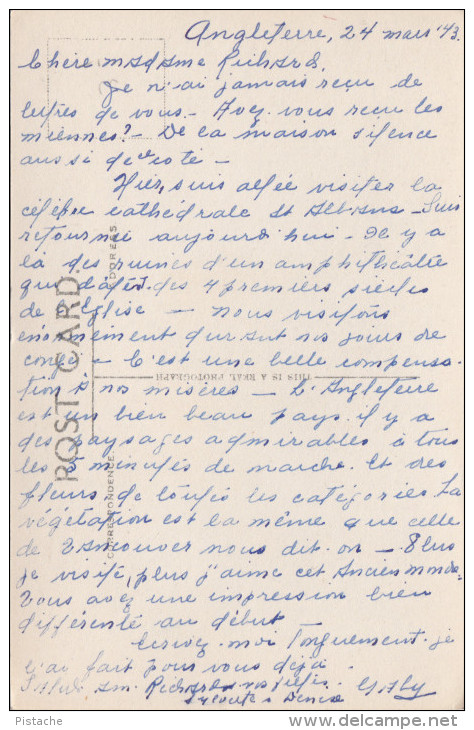 Angleterre, 24 mars '43.
Chère Madame Richard.
Je n'ai jamais reçu de
lettres de vous - Avez vous reçu les
miennes? - De la maison silence
aussi de ce coté -
Hier, suis allée visiter la
célèbre cathédrale St Albans - Suis
retournée aujourd'hui - Il y a
là des ruines d'un amphithéâtre
qui date des 4 premiers siècles
de l'Eglise - nous visitons
énormément durant nos jours de
congé - C'est une belle compensa
tion à nos misères - L'Angleterre
est un bien beau pays il y a
des paysages admirables à tous
les 5 minutes de marche. Et des
fleurs de toutes les catégories. La
végétation est la même que celle
de Vancouver nous dit-on - Plus
je visite, plus j'aime cet Ancien monde
Vous avez une impression bien
différente au début
Ecrivez-moi longuement. je
l'ai fait pour vous déjà.
Salut Mr. Richard
& Denise Gaby
POST CARD.
CORRESPONDENCE
ADDRESS
THIS IS A REAL PHOTOGRAPH
Pistache
www.delcampe.net